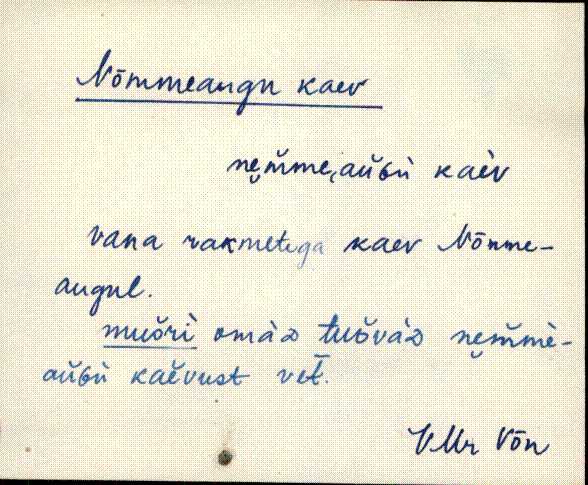 Nõmmeaugu kaev
nę̮m̆me‿aŭɢù kaèv
vana rakmetega kaev Nõmme-
augul.
mušrì omàᴢ tušvàᴢ nę̮m̆mè-
aŭɢù kaĕvust vet̄.
VMr Võn